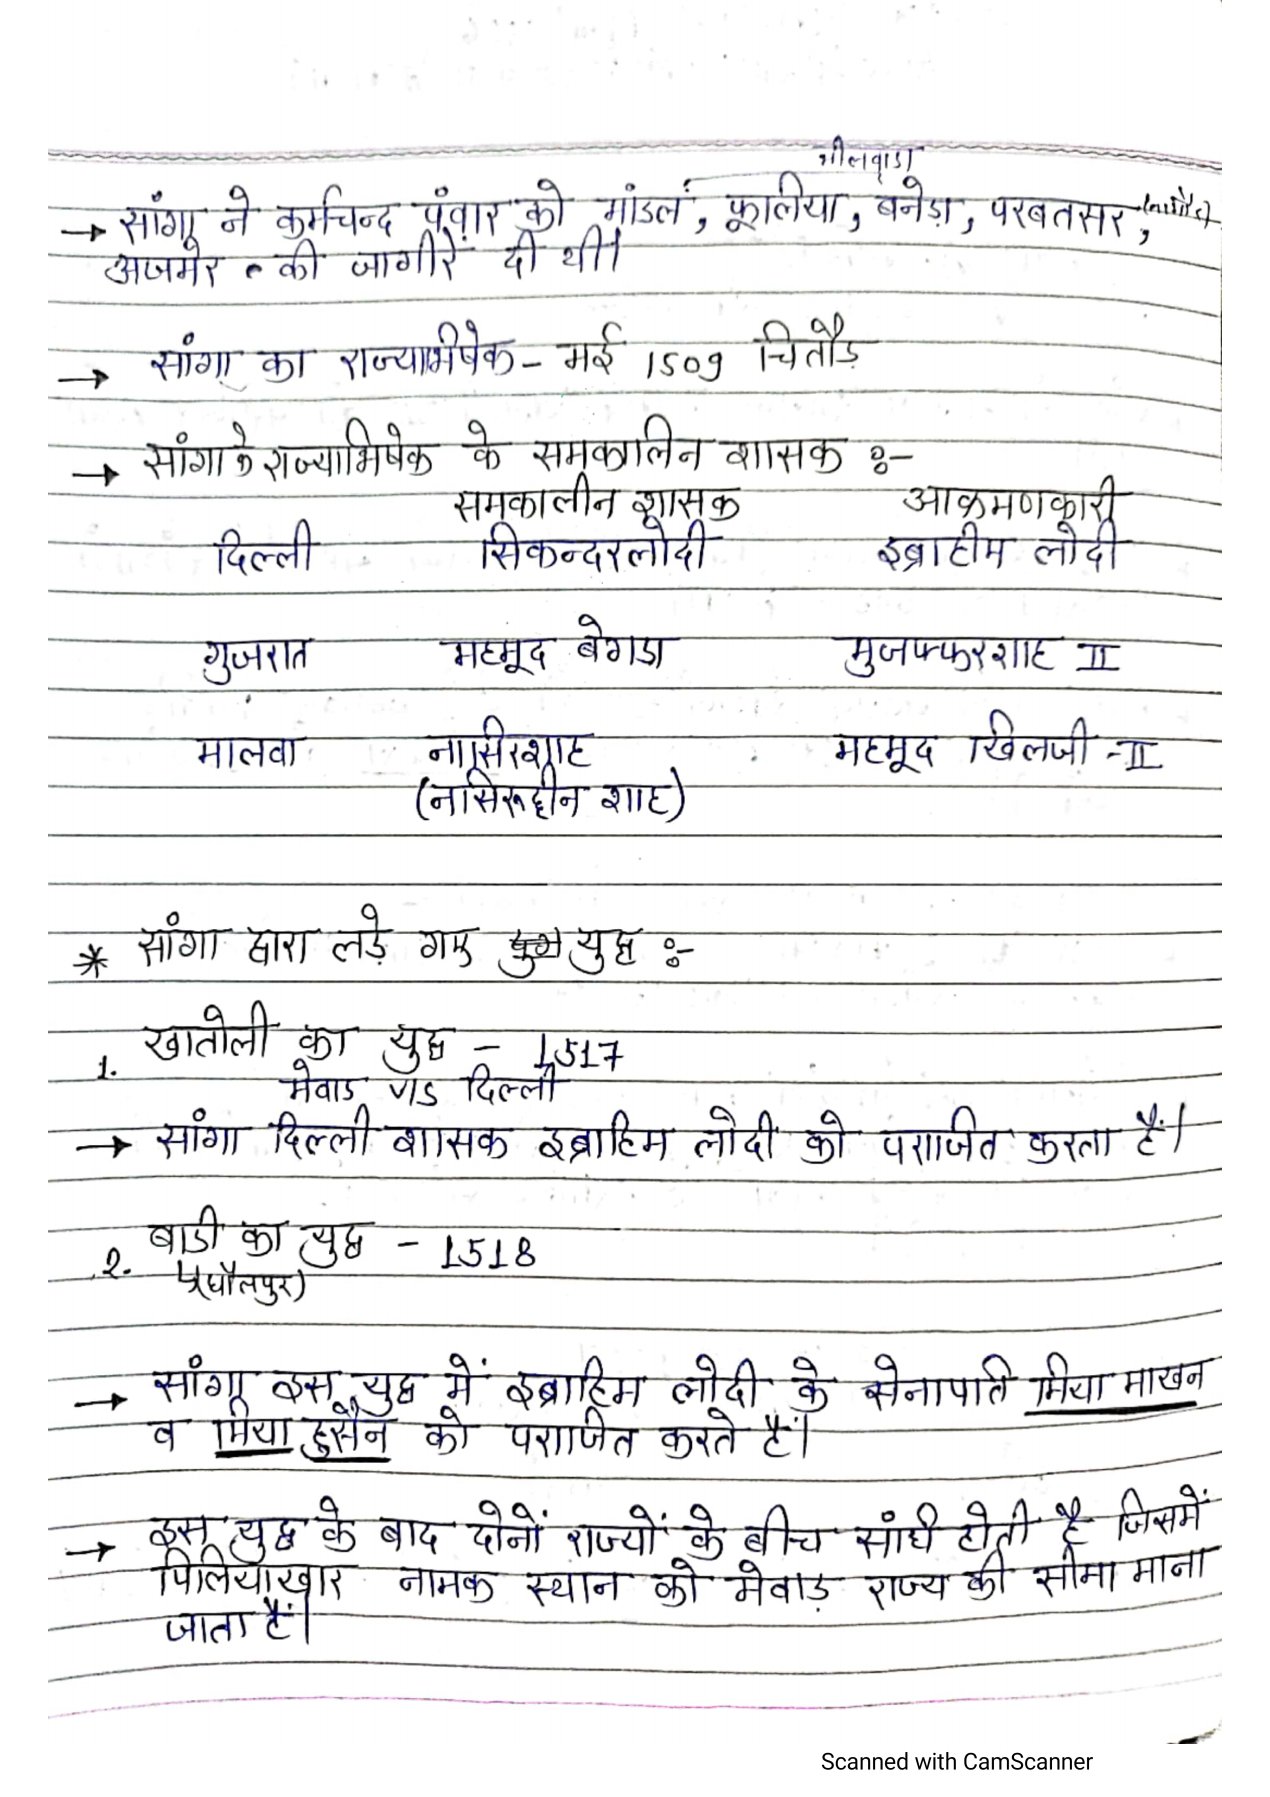 भीलवाडा
→ सांगा ने कर्मचन्द पंवार को मांडल, फूलिया, बनेडा, परबतसर, (नागौर)
अजमेर की जागीरें दी थी।
→ सांगा का राज्याभिषेक - मई 1509 चितौड़
→ सांगा के राज्याभिषेक के समकालिन शासक :-
समकालीन शासक आक्रमणकारी
दिल्ली सिकन्दरलोदी इब्राहीम लोदी
गुजरात महमूद बेगडा मुजफ्फरशाह II
मालवा नासिरशाह महमूद खिलजी - II
(नासिरूद्दीन शाह)
* सांगा द्वारा लड़े गए युद्ध :-
1. खातोली का युद्ध - 1517
मेवाड V/S दिल्ली
→ सांगा दिल्ली शासक इब्राहिम लोदी को पराजित करता हैं।
2. बाडी का युद्ध - 1518
↳(धौलपुर)
→ सांगा इस युद्ध में इब्राहिम लोदी के सेनापति मिया माखन
व मिया हुसैन को पराजित करते हैं।
→ इस युद्ध के बाद दोनों राज्यों के बीच संधि होती है जिसमें
पिलियाखार नामक स्थान को मेवाड़ राज्य की सीमा माना
जाता हैं।
Scanned with CamScanner